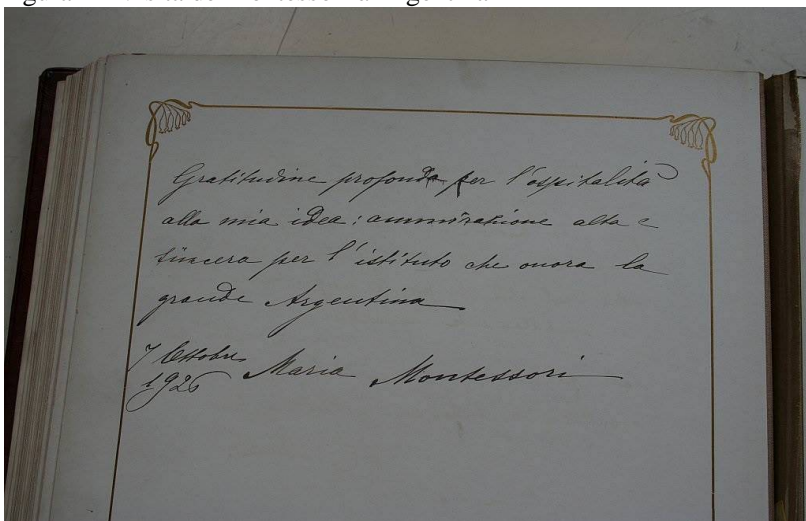 Gratitudine profonda per l'ospitalità
alla mia idea; ammirazione alta e
sincera per l'istituto che onora la
grande Argentina
7 Ottobre
1926 Maria Montessori